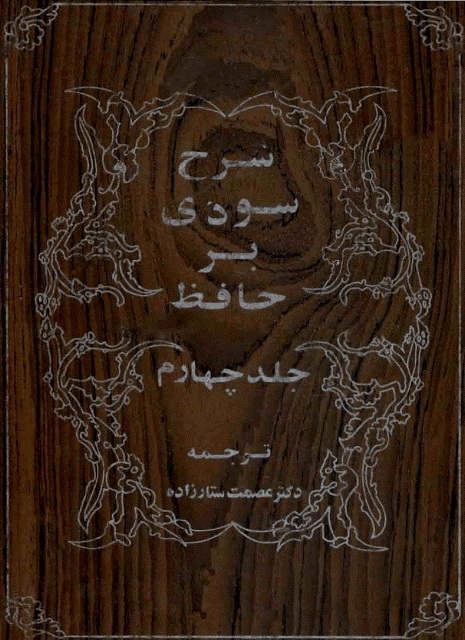 شرح
سودی
بر
حافظ
جلد چهارم
ترجمه
دکتر عصمت ستارزاده